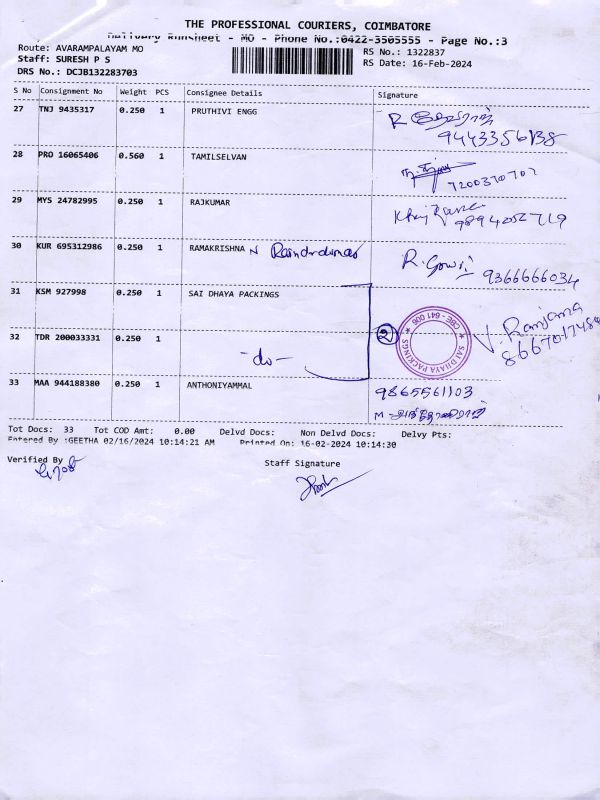 THE PROFESSIONAL COURIERS, COIMBATORE
Delivery Runsheet - MO - Phone No.:0422-3505555 - Page No.:3
Route: AVARAMPALAYAM MO
RS No.: 1322837
Staff: SURESH P S
RS Date: 16-Feb-2024
DRS No.: DCJB132283703
S No Consignment No Weight PCS Consignee Details Signature
27 TNJ 9435317 0.250 1 PRUTHIVI ENGG
28 PRO 16065406 0.560 1 TAMILSELVAN
7200370702
29 MYS 24782995 0.250 1 RAJKUMAR
30 KUR 695312986 0.250 1 RAMAKRISHNA N
R. Gowri 9366666034
31 KSM 927998 0.250 1 SAI DHAYA PACKINGS
2
SAI DHAYA PACKINGS
CBE - 641 006
V. Ranjana
8667017484
32 TDR 200033331 0.250 1
-do-
33 MAA 944188380 0.250 1 ANTHONIYAMMAL
9865561103
Tot Docs: 33 Tot COD Amt: 0.00 Delvd Docs: Non Delvd Docs: Delvy Pts:
Entered By :GEETHA 02/16/2024 10:14:21 AM Printed On: 16-02-2024 10:14:30
Verified By
Staff Signature